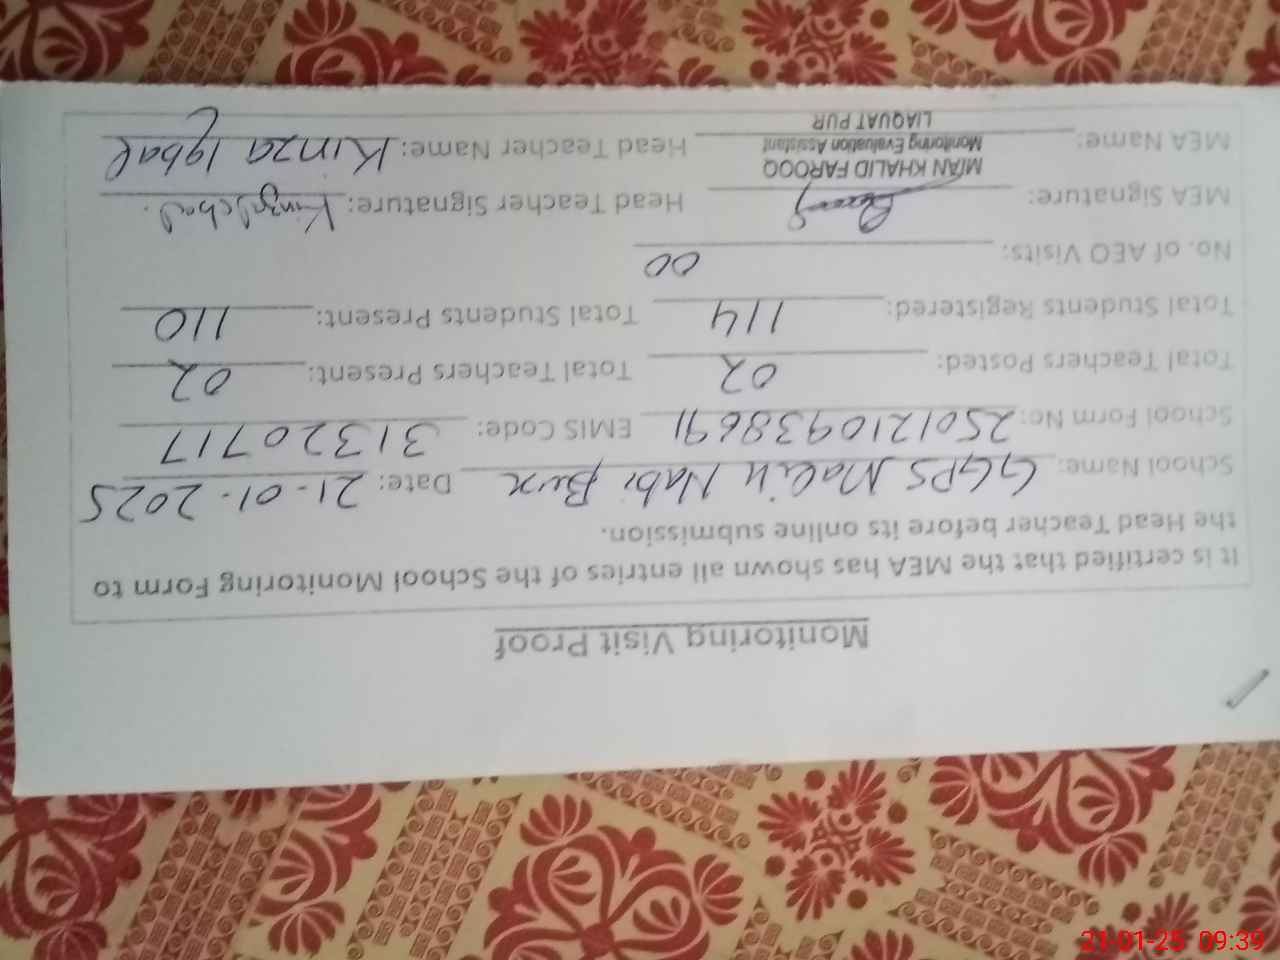 Monitoring Visit Proof
It is certified that the MEA has shown all entries of the School Monitoring Form to
the Head Teacher before its online submission.
School Name: GGPS Malik Nabi Bux Date: 21-01-2025
School Form No: 250121093869 1 EMIS Code: 31320717
Total Teachers Posted: 02 Total Teachers Present: 02
Total Students Registered: 114 Total Students Present: 110
No. of AEO Visits: 00
MEA Signature: Head Teacher Signature: Kinza Iqbal.
MIAN KHALID FAROOQ
Monitoring Evaluation Assistant
MEA Name: Head Teacher Name: Kinza Iqbal
LIAQUAT PUR
21-01-25 09:39